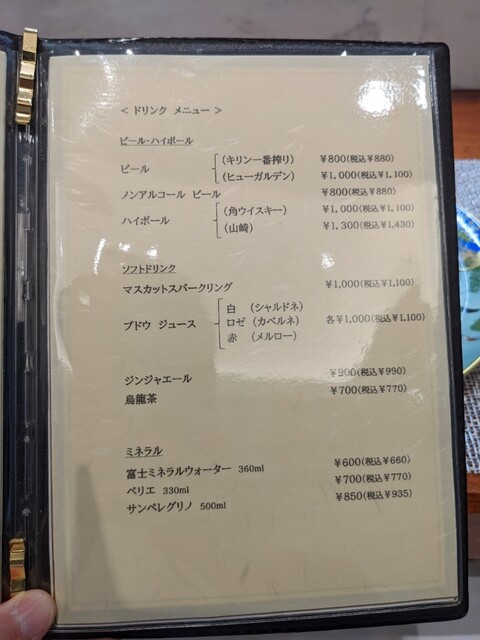 < ドリンク メニュー >
ビール・ハイボール
ビール (キリン一番搾り) ¥800(税込¥880)
(ヒューガルデン) ¥1,000(税込¥1,100)
ノンアルコール ビール ¥800(税込¥880)
ハイボール (角ウイスキー) ¥1,000(税込¥1,100)
(山崎) ¥1,300(税込¥1,430)
ソフトドリンク
マスカットスパークリング ¥1,000(税込¥1,100)
ブドウ ジュース 白 (シャルドネ)
ロゼ (カベルネ) 各¥1,000(税込¥1,100)
赤 (メルロー)
ジンジャエール ¥900(税込¥990)
烏龍茶 ¥700(税込¥770)
ミネラル
富士ミネラルウォーター 360ml ¥600(税込¥660)
ペリエ 330ml ¥700(税込¥770)
サンペレグリノ 500ml ¥850(税込¥935)